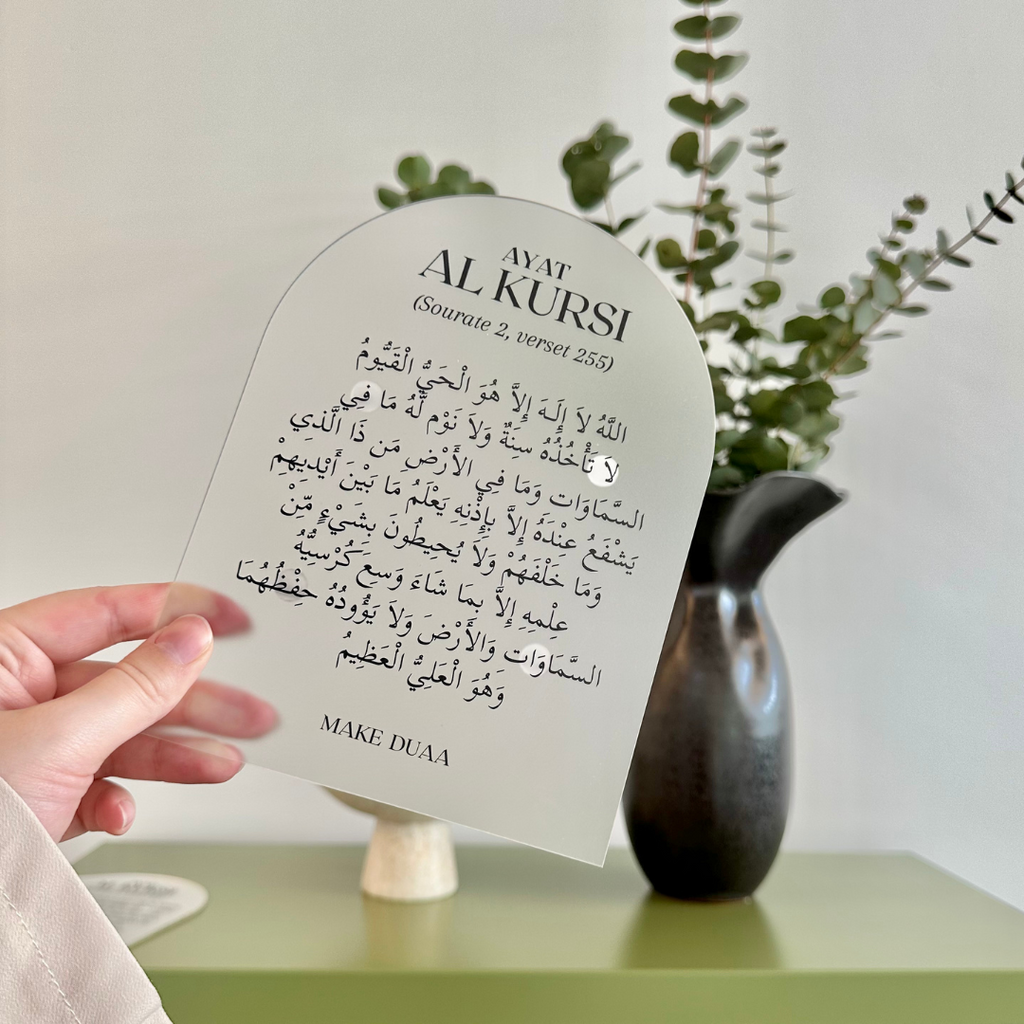 AYAT
AL KURSI
(Sourate 2, verset 255)
اللَّهُ لاَ إِلَهَ إِلاَّ هُوَ الْحَيُّ الْقَيُّومُ
لاَ تَأْخُذُهُ سِنَةٌ وَلاَ نَوْم لَّهُ مَا فِي
السَّمَاوَاتِ وَمَا فِي الأَرْضِ مَن ذَا الَّذِي
يَشْفَعُ عِنْدَهُ إِلاَّ بِإِذْنِهِ يَعْلَمُ مَا بَيْنَ أَيْدِيهِمْ
وَمَا خَلْفَهُمْ وَلاَ يُحِيطُونَ بِشَيْءٍ مِّنْ
عِلْمِهِ إِلاَّ بِمَا شَاءَ وَسِعَ كُرْسِيُّهُ
السَّمَاوَاتِ وَالأَرْضَ وَلاَ يَؤُودُهُ حِفْظُهُمَا
وَهُوَ الْعَلِيُّ الْعَظِيمُ
MAKE DUAA